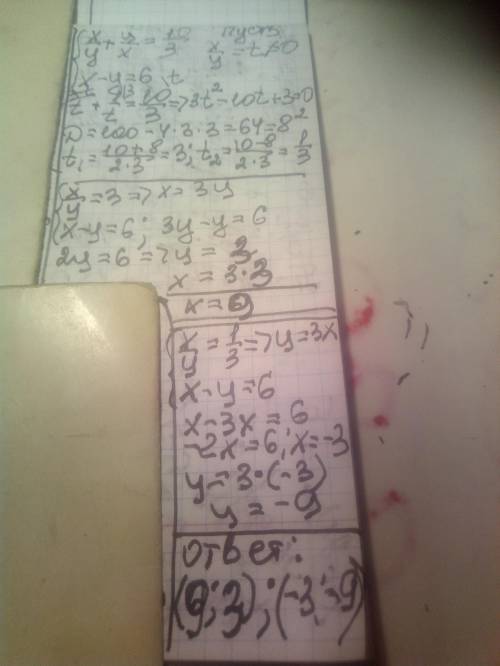 x/y + y/x = 10/3 пусть
x-y=6 x/y = t≠0
t + 1/t = 10/3 => 3t²-10t+3=0
D=100-4·3·3=64=8²
t₁=(10+8)/(2·3)=3; t₂=(10-8)/(2·3)=1/3
x/y=3 => x=3y
x-y=6; 3y-y=6
2y=6 => y=3
x=3·3
x=9
x/y=1/3 => y=3x
x-y=6
x-3x=6
-2x=6; x=-3
y=3·(-3)
y=-9
ответ:
(9;3);(-3;-9)